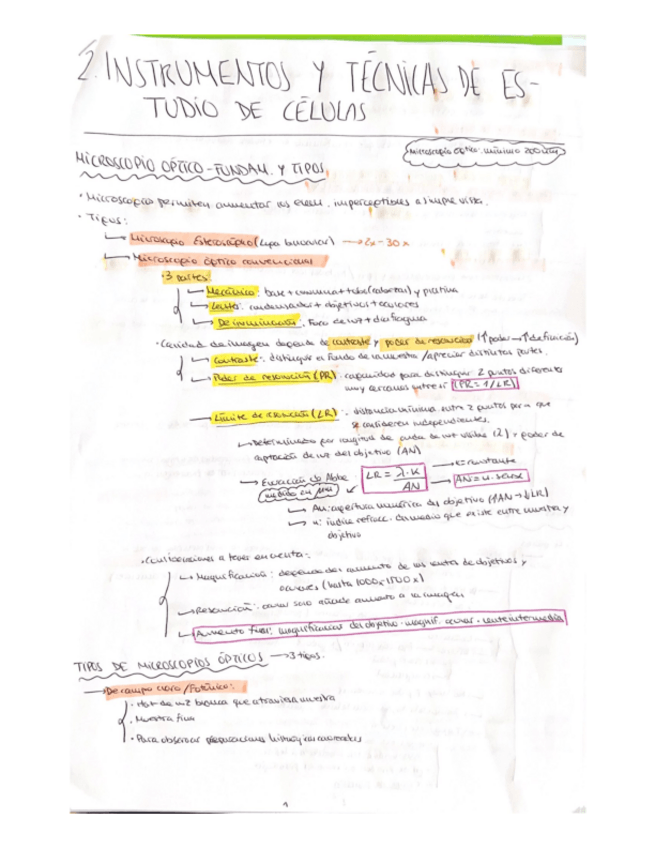 2. INSTRUMENTOS Y TÉCNICAS DE ES-
TUDIO DE CÉLULAS
Microscopio óptico: mínimo 200 nm
MICROSCOPIO ÓPTICO - FUNDAM. Y TIPOS
· Microscopio permiten aumentar los elem. imperceptibles a simple vista.
· Tipos:
→ Microscopio Estereoscópico (lupa binocular) → 2x - 30x
→ Microscopio óptico convencional
· 3 partes:
→ Mecánico: base + columna + tubo (rotatorio) y platina
→ Lentes: condensador + objetivos + oculares
→ De iluminación: Foco de luz + diafragma
· Calidad de imagen depende de contraste y poder de resolución (↑poder → ↑definición)
→ Contraste: distinguir el fondo de la muestra / apreciar distintas partes.
→ Poder de resolución (PR): capacidad para distinguir 2 puntos diferentes
muy cercanos entre sí (PR = 1/LR)
→ Límite de resolución (LR): distancia mínima entre 2 puntos para que
se consideren independientes.
→ Determinado por longitud de onda de luz visible (λ) y poder de
captación de luz del objetivo (AN)
→ Ecuación de Abbe: LR = λ·K / AN → K = constante
→ AN = n · senα
→ AN: apertura numérica del objetivo (↑AN → ↓LR)
→ n: índice refracc. del medio que existe entre muestra y
objetivo
· Consideraciones a tener en cuenta:
→ Magnificación: depende del aumento de las lentes de objetivos y
oculares (hasta 1000x-1500x)
→ Resolución: ocular solo añade aumento a la imagen
→ Aumento final: magnificación del objetivo · magnif. ocular · lente intermedia
TIPOS DE MICROSCOPIOS ÓPTICOS → 3 tipos.
→ De campo claro / Fotónico:
· Haz de luz blanca que atraviesa muestra
· Muestra fina
· Para observar preparaciones histológicas
1